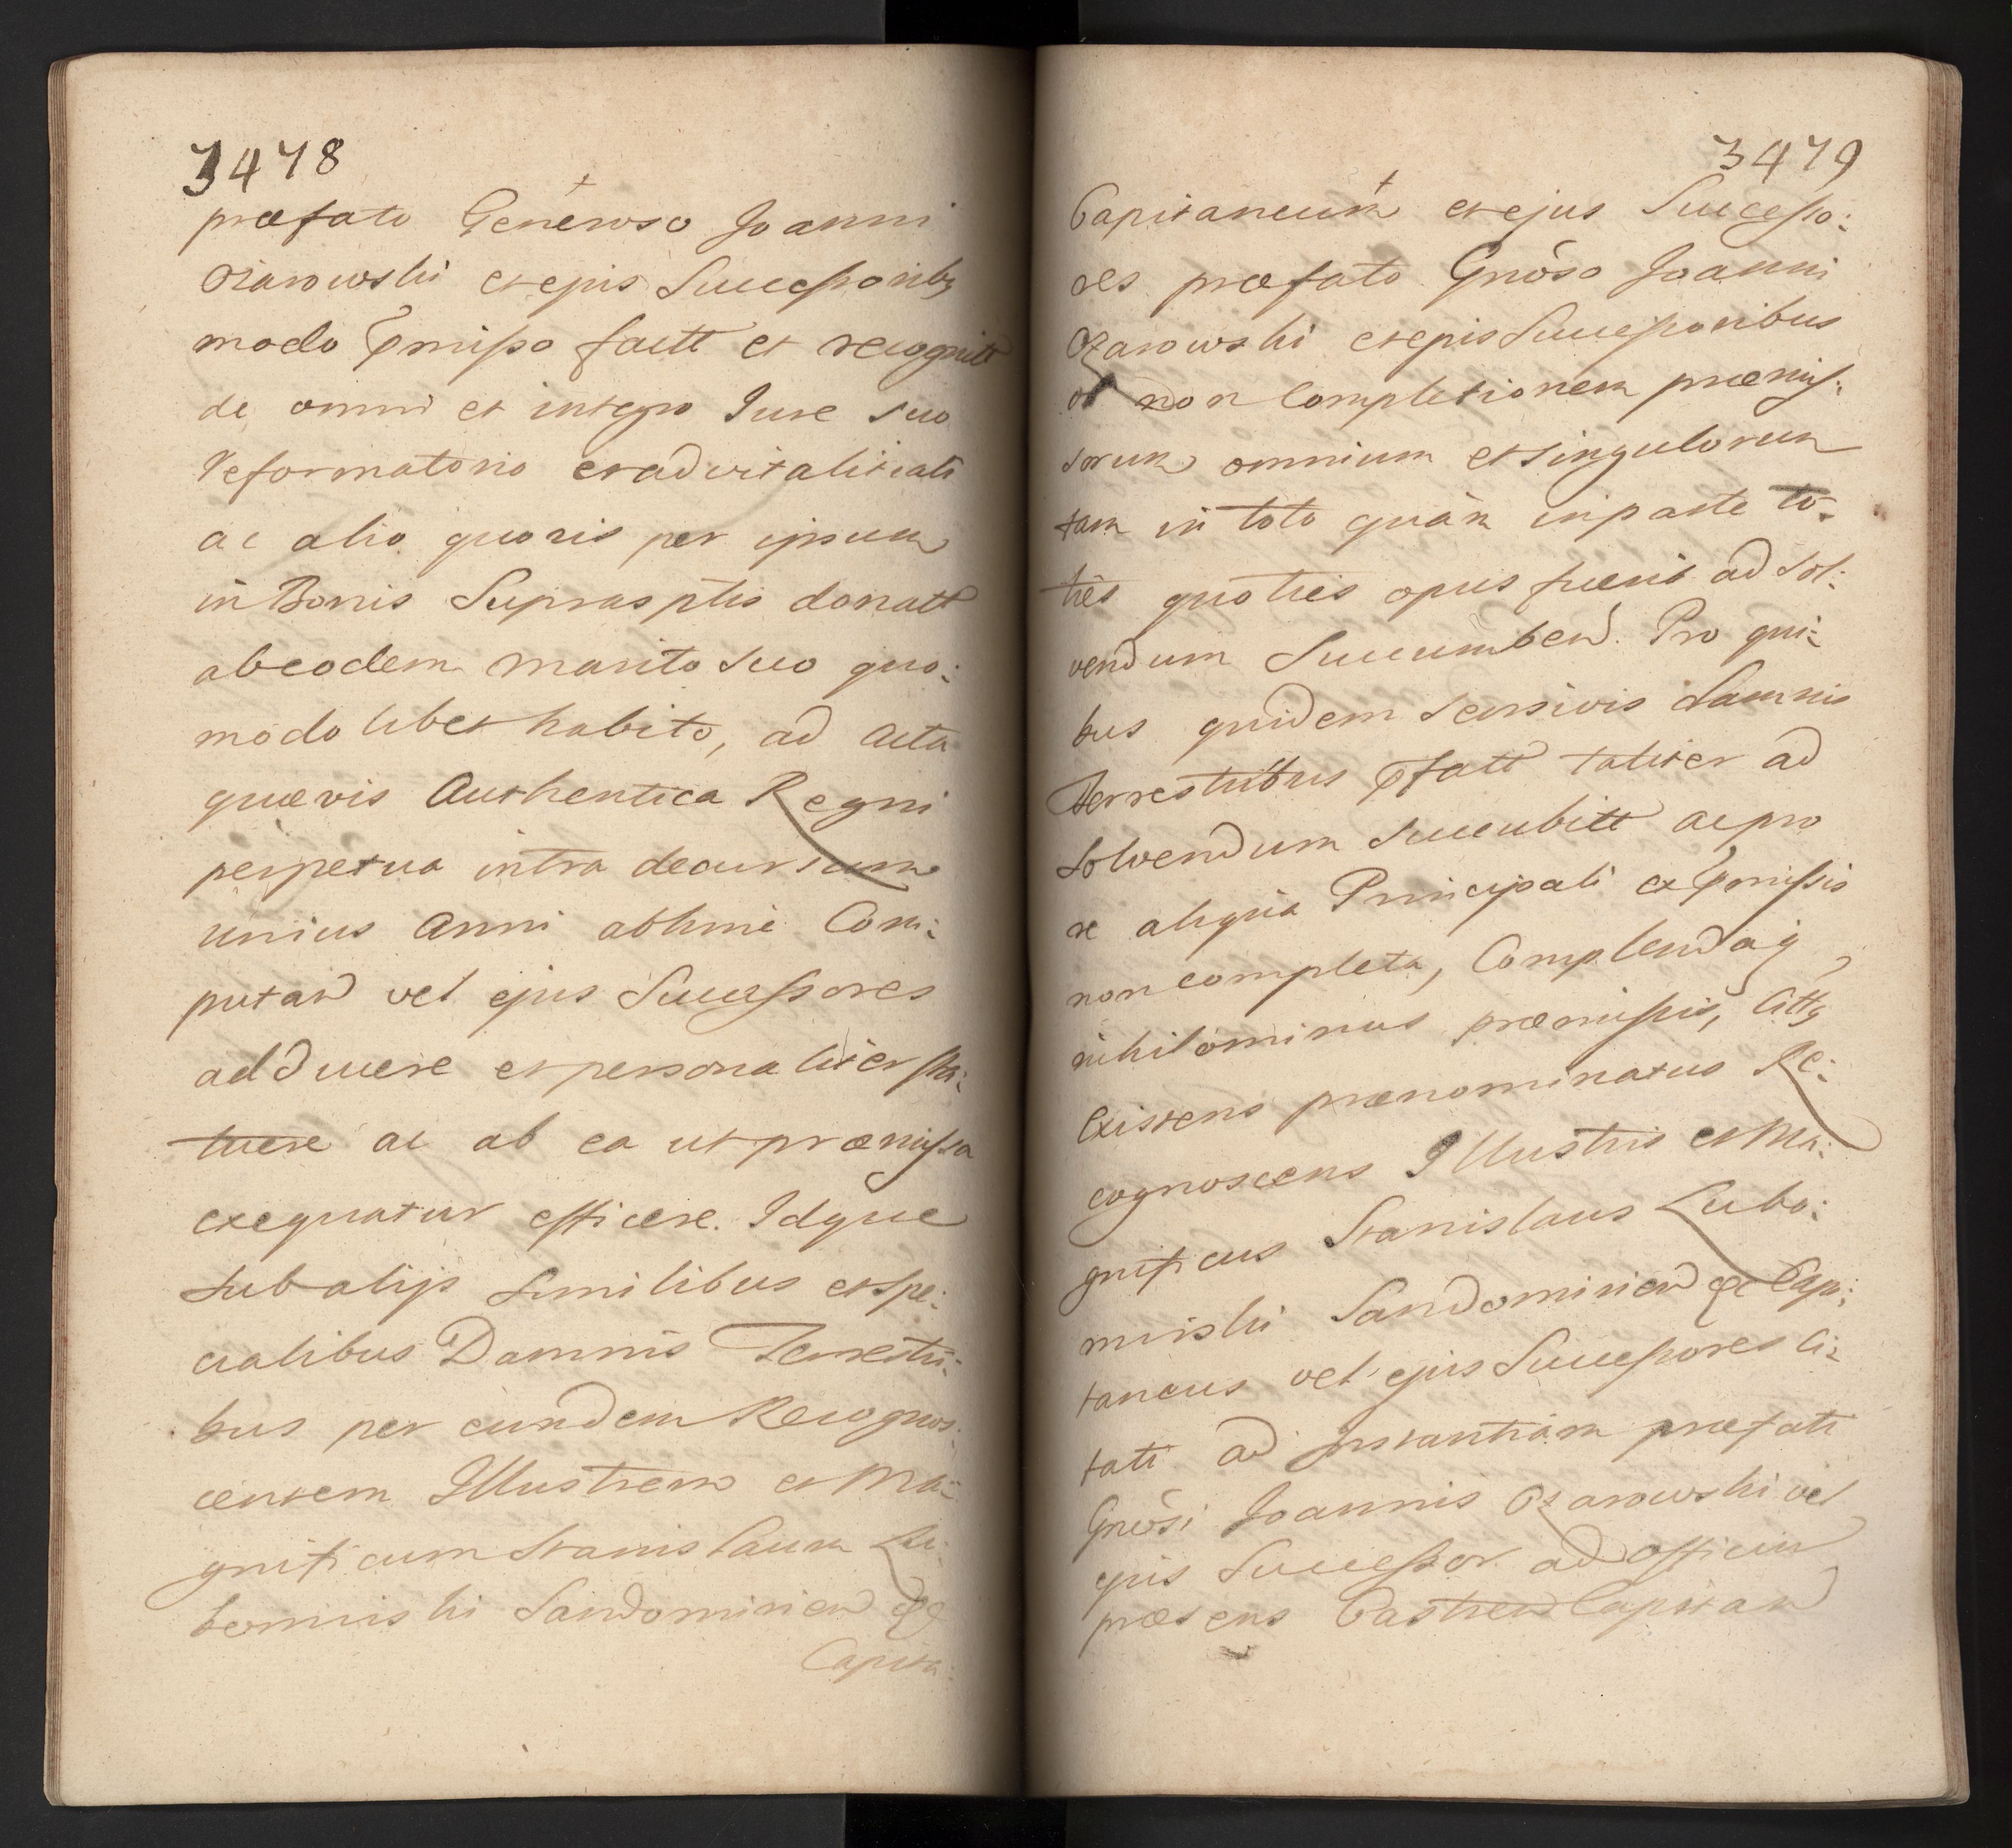 3478
præfato Generoso Joanni
Ożarowski et ejus Successoribq
modo pmisso factt et recognitt
de omni et integro Jure suo
Reformatorio et advitalitiali
ac alio quovis per ipsum
in Bonis Suprasptis donatt
ab eodem marito suo quo:
modo libet habito, ad Acta
quævis Authentica Regni
perpetua intra decursum
unius Anni abhinc Com:
putand vel ejus Successores
adducere et personaliter sta:
tuere ac ab ea ut præmissa
exequatur efficere. Idque
sub alijs similibus et spe:
cialibus Damnis Terrestri:
bus per eundem Recognos:
centem Illustrem et Ma:
gnificum Stanislaum Lu:
bomirski Sandomirien &c
Capita:
3479
Capitaneum et ejus Successo:
res præfato Gnöso Joanni
Ożarowski et ejus Successoribus
ob non Completionem præmis:
sorum omnium et singulorum
tam in toto quàm in parte to:
ties quoties opus fuerit ad sol:
vendum Succumbend. Pro qui:
bus quidem senivis damnis
Terrestribus pfatt taliter ad
solvendum succubitt ac pro
re aliqua Principali ex pmissis
non completa, Complendaq
nihilominus præmissis, Cittq
Existens prænominatus Re:
cognoscens Illustris et Ma:
gnificus Stanislaus Lubo:
mirski Sandomirien &c Capi:
taneus vel ejus Successores Ci:
tati ad Instantiam præfati
Gnösi Joannis Ożarowski vel
ejus Successor ad officiu
præsens Castren Capitan